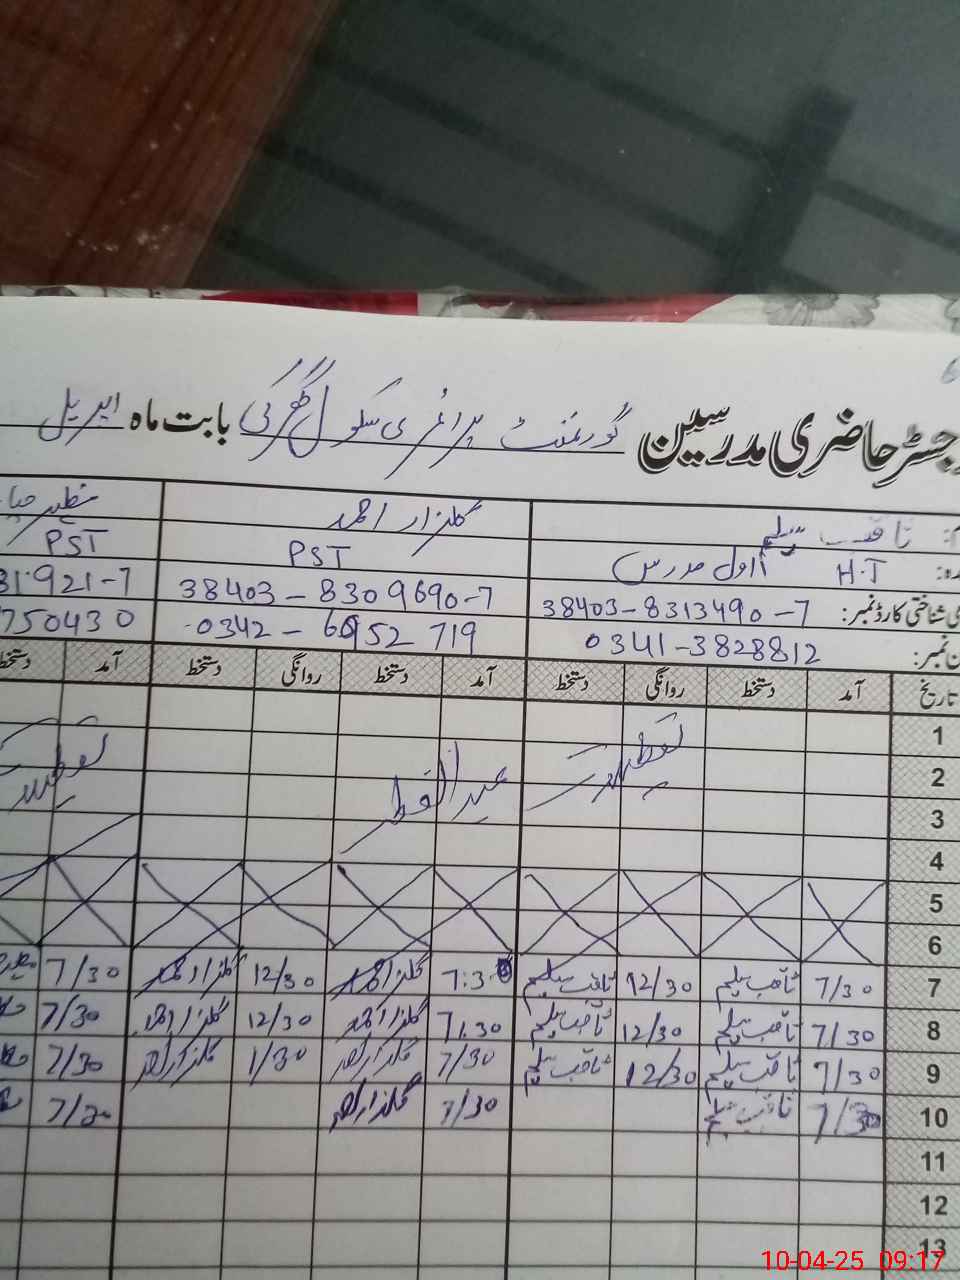 جسٹر حاضری مدرسین گورنمنٹ پرائمری سکول بابت ماہ اپریل
ثاقب سلیم گلزار احمد
H.T اول مدرس PST PST
شناختی کارڈ نمبر: 38403-8313490-7 38403-8309690-7 921-7
نمبر: 0341-3828812 0342-6952719 750430
تاریخ آمد دستخط روانگی دستخط آمد دستخط روانگی دستخط آمد دستخط
1
2 تعطیلات عید الفطر تعطیلات
3
4
5
6
7 7/30 ثاقب سلیم 12/30 ثاقب سلیم 7:30 گلزار احمد 12/30 گلزار احمد 7/30
8 7/30 ثاقب سلیم 12/30 ثاقب سلیم 7/30 گلزار احمد 12/30 گلزار احمد 7/30
9 7/30 ثاقب سلیم 12/30 ثاقب سلیم 7/30 گلزار احمد 1/30 گلزار احمد 7/30
10 7/30 ثاقب سلیم 7/30 گلزار احمد 7/30
11
12
13
10-04-25 09:17